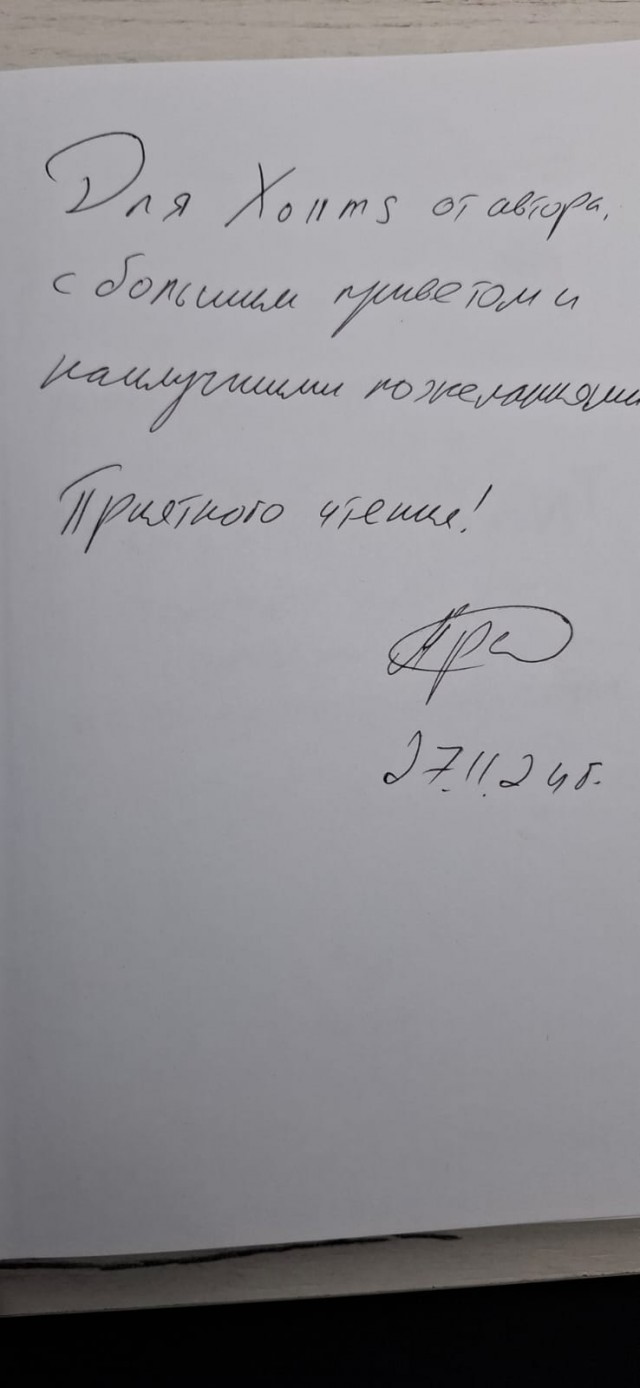 Для Xollms от автора,
с большим приветом и
наилучшими пожеланиями
Приятного чтения!
27.11.24г.